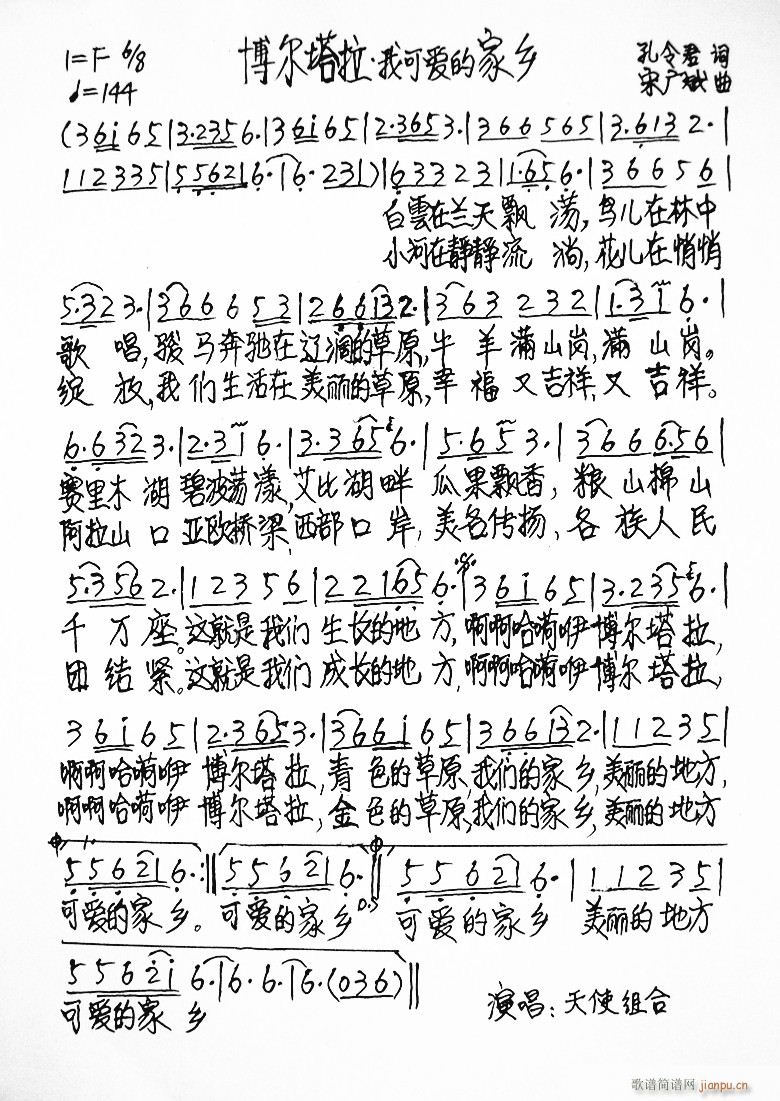 1=F 6/8 博尔塔拉·我可爱的家乡 孔令君 词
♩=144 宋广斌 曲
(3 6 i 6 5 | 3·2 3 5 6· | 3 6 i 6 5 | 2·3 6 5 3· | 3 6 6 5 6 5 | 3·6 1 3 2· |
1 1 2 3 3 5 | 5 5 6 2 1 6· | 6· 2 3 1) | 6 3 3 2 3 | 1·6 5 6· | 3 6 6 5 6 |
白雲在兰天飘 荡,鸟儿在林中
小河在静静流 淌,花儿在悄悄
5·3 2 3· | 3 6 6 6 5 3 | 2 6 6 1 3 2· | 3 6 3 2 3 2 | 1·3 i 6· |
歌 唱,骏马奔驰在辽阔的草原,牛 羊 满山岗,满 山 岗。
绽 放,我们生活在美丽的草原,幸 福 又吉祥,又 吉 祥。
6·6 3 2 3· | 2·3 i 6· | 3·3 6 5 6· | 5·6 5 3· | 3 6 6 6 5 6 |
赛里木 湖 碧波荡漾,艾比湖畔 瓜果飘香, 粮 山棉 山
阿拉山 口 亚欧桥梁,西部口 岸, 美名传扬, 各 族人 民
5·3 5 6 2· | 1 2 3 5 6 | 2 2 1 6 5 6· | 3 6 i 6 5 | 3·2 3 5 6· |
千 万 座。这就是我们 生长的地 方,啊啊哈嗬咿博尔塔拉,
团 结 紧。这就是我们 成长的地 方,啊啊哈嗬咿博尔塔拉,
3 6 i 6 5 | 2·3 6 5 3· | 3 6 6 i 6 5 | 3 6 6 1 3 2· | 1 1 2 3 5 |
啊啊哈嗬咿 博尔塔拉, 青 色的草原,我们的家乡,美丽的地方,
啊啊哈嗬咿 博尔塔拉, 金 色的草原,我们的家乡,美丽的地方
5 5 6 2 1 6· :‖ 5 5 6 2 1 6· ‖ 5 5 6 2 1 6· | 1 1 2 3 5 |
可爱的家 乡。 可爱的家 乡 D.S 可爱的家 乡 美丽的地方
5 5 6 2 i 6· | 6· 6· | 6· (0 3 6) ‖
可爱的家 乡 演唱:天使组合
歌谱简谱网
jianpu.cn